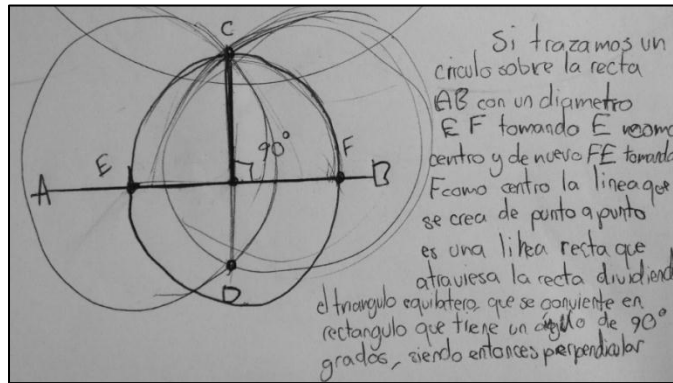 C
Si trazamos un
circulo sobre la recta
AB con un diametro
E F tomando E como
centro y de nuevo FE tomando
F como centro la linea que
se crea de punto a punto
es una linea recta que
atraviesa la recta dividiend
el triangulo equilatero que se convierte en
rectangulo que tiene un ángulo de 90°
grados, siendo entonces perpendicular
A
E
90°
F
B
D